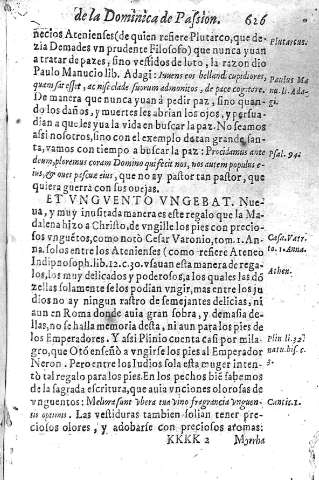 de la Dominica de Passion. 626
necios Atenienses (de quien refiere Plutarco, que de-
zia Demades vn prudente Filosofo) que nunca yuan
Plutarcus.
a tratar de pazes, sino vestidos de luto, la razon dio
Paulo Manucio lib. Adagi: Iuuenes eos bellandi cupidiores,
Paulus Ma
quam sat esset, ac nisi clade suorum admonitos, de pace cogitare.
nu. li. Ada-
gi.
De manera que nunca yuan à pedir paz, sino quan-
do los daños, y muertes les abrian los ojos, y persua-
dian a que les yua la vida en buscar la paz. No seamos
assi nosotros, sino con el exemplo de tan grande san-
ta, vamos con tiempo a buscar la paz: Procidamus ante
Psal. 94.
deum, ploremus coram Domino qui fecit nos, nos autem populus e-
ius, & oues pascuæ eius, que no ay pastor tan pastor, que
quiera guerra con sus ovejas.
ET VNGVENTO VNGEBAT. Nue-
ua, y muy inusitada manera es este regalo que la Ma-
dalena hizo a Christo, de vngille los pies con precio-
sos vnguẽtos, como notò Cesar Varonio, tom. 1. An-
Cæsa. Varr.
na. solos entre los Atenienses (como refiere Ateneo
to. 1. Anna.
Indipnosoph. lib. 12. c. 30. vsauan esta manera de rega-
Athen.
los, los muy delicados y poderosos, a los quales las dõ
zellas solamente se los podian vngir, mas entre los ju
dios no ay ningun rastro de semejantes delicias, ni
aun en Roma donde auia gran sobra, y demasia de-
llas, no se halla memoria desta, ni aun para los pies de
los Emperadores. Y assi Plinio cuenta casi por mila-
Plin li. 32.
gro, que Otõ enseñò a vngirse los pies al Emperador
natu. his. c.
Neron. Pero entre los Iudios sola esta muger inten-
3.
tò tal regalo para los pies. En los pechos biẽ sabemos
de la sagrada escritura, que auia vnciones olorosas de
vnguentos: Meliora sunt vbera tua vino fragrantia vnguen-
Cantic. 1.
tis optimis. Las vestiduras tambien solian tener pre-
ciosos olores, y adobarse con preciosos aromas:
KKKK 2 Myrrha